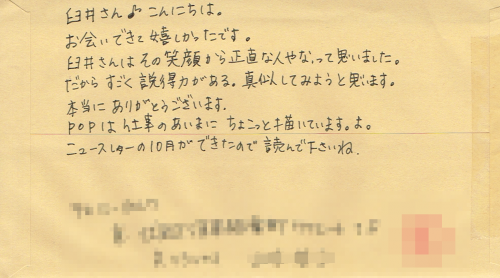 臼井さん♪こんにちは。
お会いできて嬉しかったです。
臼井さんはその笑顔から正直な人やなって思いました。
だからすごく説得力がある。真似してみようと思います。
本当にありがとうございます.
POPは仕事のあいまにちょこっと描いています。よ。
ニュースレターの10月ができたので読んで下さいね.